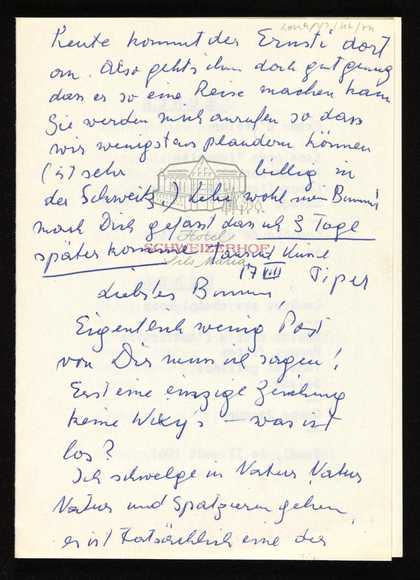 Heute kommt der Ernsti dort
an. Also gehts ihm doch gut genug
dass er so eine Reise machen kann
Sie werden mich anrufen so dass
wir wenigstens plaudern können
(ist sehr billig in
der Schweitz.) Lebe wohl mein Bimmi
mach Dich gefasst dass ich 3 Tage
später komme Tausend Küsse
Hotel
SCHWEIZERHOF
Sils Maria
17 VII Tiper
Liebstes Bimmi
Eigentlich wenig Post
von Dir muss ich sagen!
Erst eine einzige Zeichnung
keine Wixy's — was ist
los?
Ich schwelge in Natur, Natur
Natur und Spatzieren gehen
es ist tatsächlich eine der